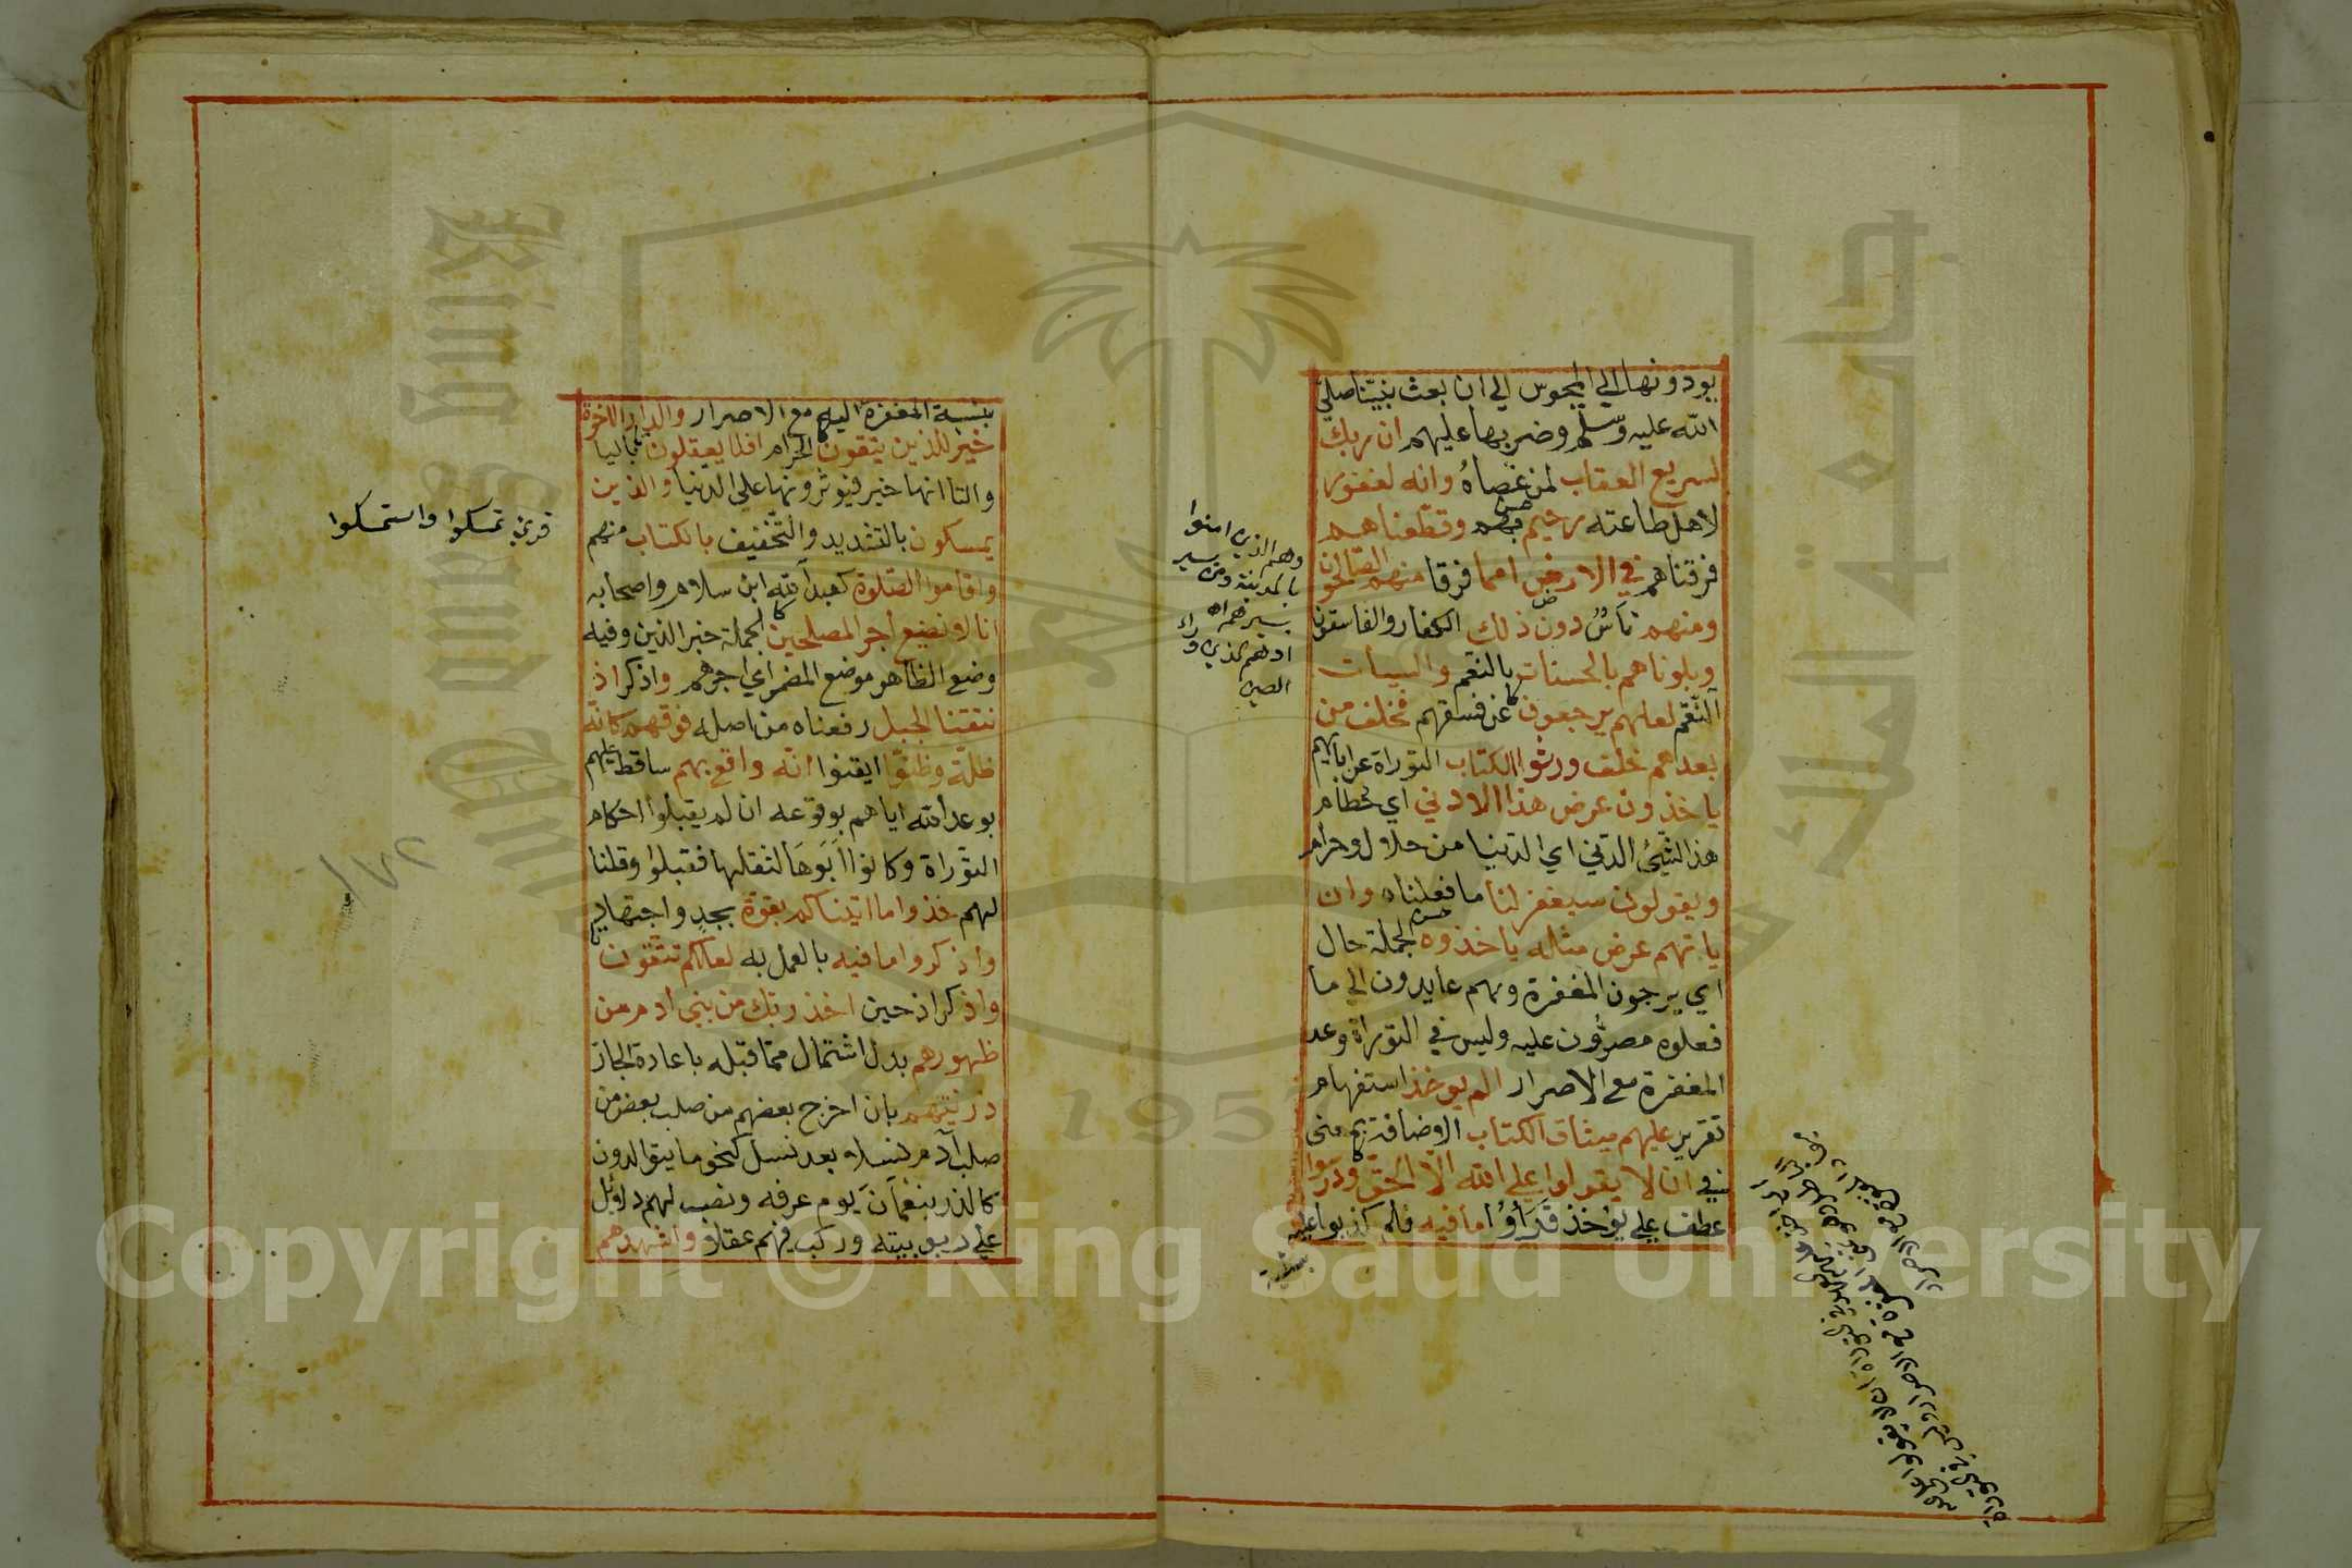 يودونها الي المجوس الي ان بعث نبينا صلي
الله عليه وسلم وضربها عليهم ان ربك
لسريع العقاب لمن عصاه وانه لغفور
لاهل طاعته رحيم بهم وقطعناهم
فرقناهم في الارض امما فرقا منهم الصالحون
ومنهم ناس دون ذلك الكفار والفاسقون
وبلوناهم بالحسنات بالنعم والسيات
النقم لعلهم يرجعون عن فسقهم فخلف من
بعدهم خلف ورثوا الكتاب التوراة عن ابايهم
ياخذون عرض هذا الادني اي حطام
هذا الشيئ الدني اي الدنيا من حلال وحرام
ويقولون سيغفر لنا ما فعلناه وان
ياتهم عرض مثله ياخذوه الجملة حال
اي يرجون المغفرة وهم عايدون الي ما
فعلوه مصرون عليه وليس في التوراة وعد
المغفرة مع الاصرار الم يوخذ استفهام
تقرير عليهم ميثاق الكتاب الاضافة بمعني
في ان لا يقولوا علي الله الا الحق ودرسوا
عطف علي يوخذ قراوا ما فيه فلم كذبوا عليه
بنسبة
وهم الذين امنوا
بالمدينة ومن
بنسبة المغفرة اليه مع الاصرار والدار الاخرة
خير للذين يتقون الحرام افلا يعقلون باليا
والتا انها خير فيوثرونها علي الدنيا والذين
يمسكون بالتشديد والتخفيف بالكتاب منهم
واقاموا الصلوة كعبد الله ابن سلام واصحابه
انا لا نضيع اجر المصلحين الجملة خبر الذين وفيه
وضع الظاهر موضع المضمر اي اجرهم واذكر اذ
نتقنا الجبل رفعناه من اصله فوقهم كانه
ظلة وظنوا ايقنوا انه واقع بهم ساقط عليهم
بوعد الله اياهم بوقوعه ان لم يقبلوا احكام
التوراة وكانوا ابوها لثقلها فقبلوا وقلنا
لهم خذوا ما اتيناكم بقوة بجد واجتهاد
واذكروا ما فيه بالعمل به لعلكم تتقون
واذكر اذ حين اخذ ربك من بني ادم من
ظهورهم بدل اشتمال مما قبله باعادة الجار
ذريتهم بان اخرج بعضهم من صلب بعض من
صلب آدم نسلا بعد نسل كنحو ما يتوالدون
كالذر بنعمان يوم عرفه ونصب لهم دلائل
علي ربوبيته وركب فيهم عقلا واشهدهم
قرئ تمسكوا واستمسكوا
King Saud University
1957
Copyright © King Saud University